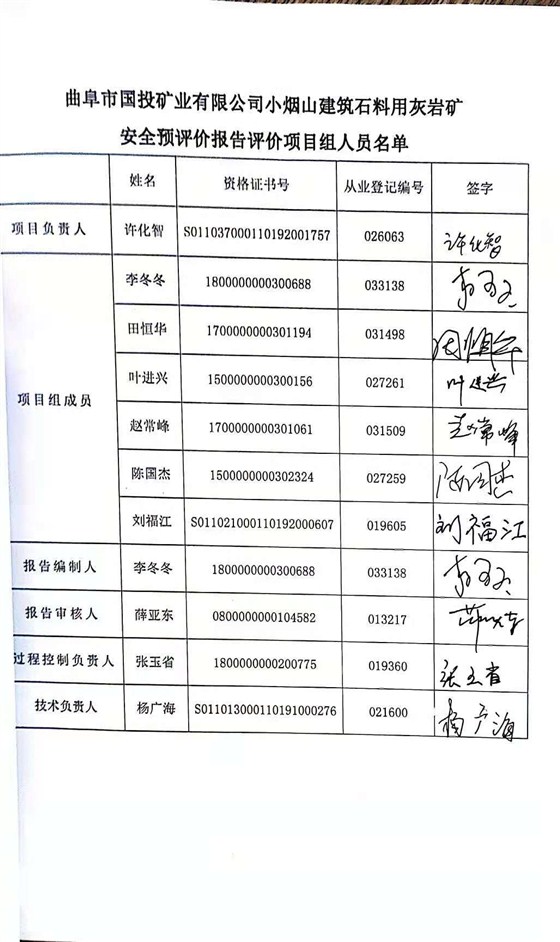 曲阜市国投矿业有限公司小烟山建筑石料用灰岩矿
安全预评价报告评价项目组人员名单
姓名 资格证书号 从业登记编号 签字
项目负责人 许化智 S011037000110192001757 026063 许化智
项目组成员
李冬冬 1800000000300688 033138 李冬冬
田恒华 1700000000301194 031498 田恒华
叶进兴 1500000000300156 027261 叶进兴
赵常峰 1700000000301061 031509 赵常峰
陈国杰 1500000000302324 027259 陈国杰
刘福江 S011021000110192000607 019605 刘福江
报告编制人 李冬冬 1800000000300688 033138 李冬冬
报告审核人 薛亚东 0800000000104582 013217 薛亚东
过程控制负责人 张玉省 1800000000200775 019360 张玉省
技术负责人 杨广海 S011013000110191000276 021600 杨广海